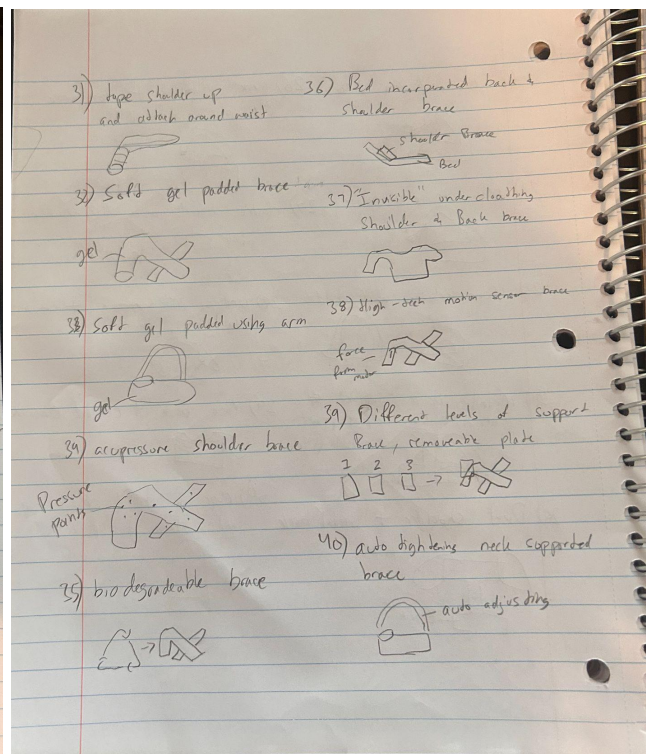 31) tape shoulder up
and attach around waist
32) Soft gel padded brace
gel
33) Soft gel padded using arm
gel
34) acupressure shoulder brace
Pressure
points
35) biodegradeable brace
36) Bed incorporated back &
shoulder brace
shoulder Brace
Bed
37) "Invisible" under cloathing
Shoulder & Back brace
38) High-tech motion sensor brace
force
from
39) Different levels of support
Brace, removeable plate
1 2 3
40) auto tightening neck supported
brace
auto adjusting